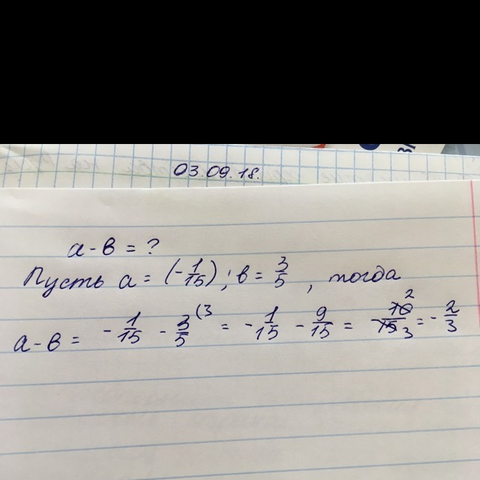 03.09.18.
a-в = ?
Пусть a = (-1/15); в = 3/5 , тогда
a-в = -1/15 - 3/5 (3 = -1/15 - 9/15 = -10 2/15 3 = -2/3